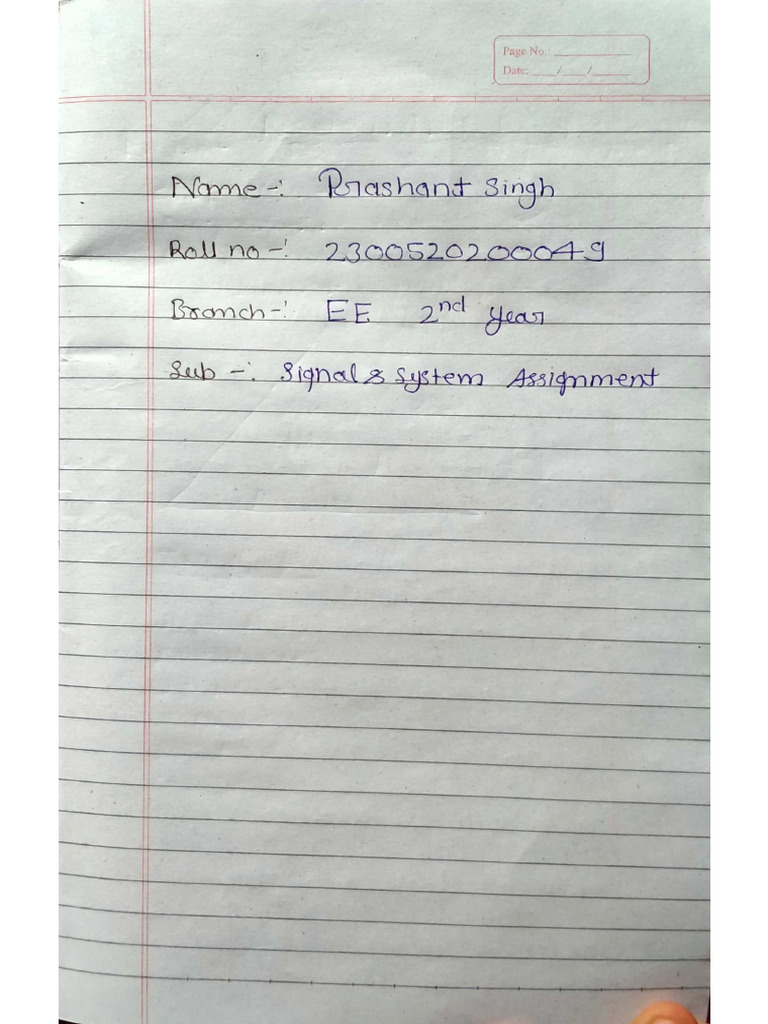 Page No.:
Date: / /
Name -: Prashant Singh
Roll no -: 2300520200049
Branch -: EE 2nd year
Sub -: Signal & System Assignment